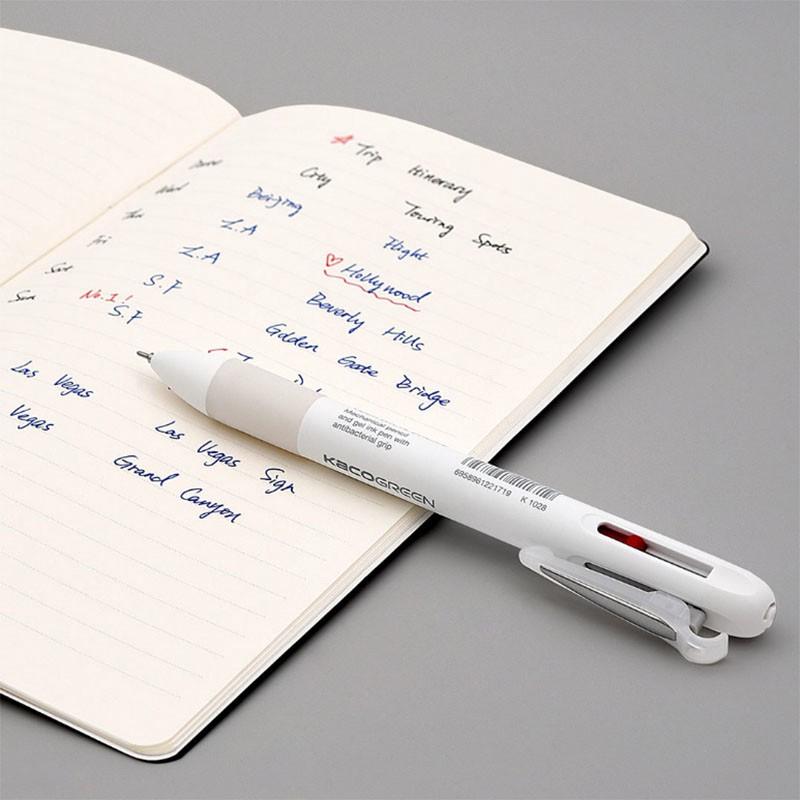 Trip Itinerary
City Touring Spots
Beijing Flight
Wed L.A Hollywood
Thu L.A Beverly Hills
Fri S.F Golden Gate Bridge
Sat No.1! S.F
Sun Las Vegas Las Vegas Sign
Vegas Grand Canyon
Mechanical pencil
and gel ink pen with
antibacterial grip
KACOGREEN
6958961221719 K 1028